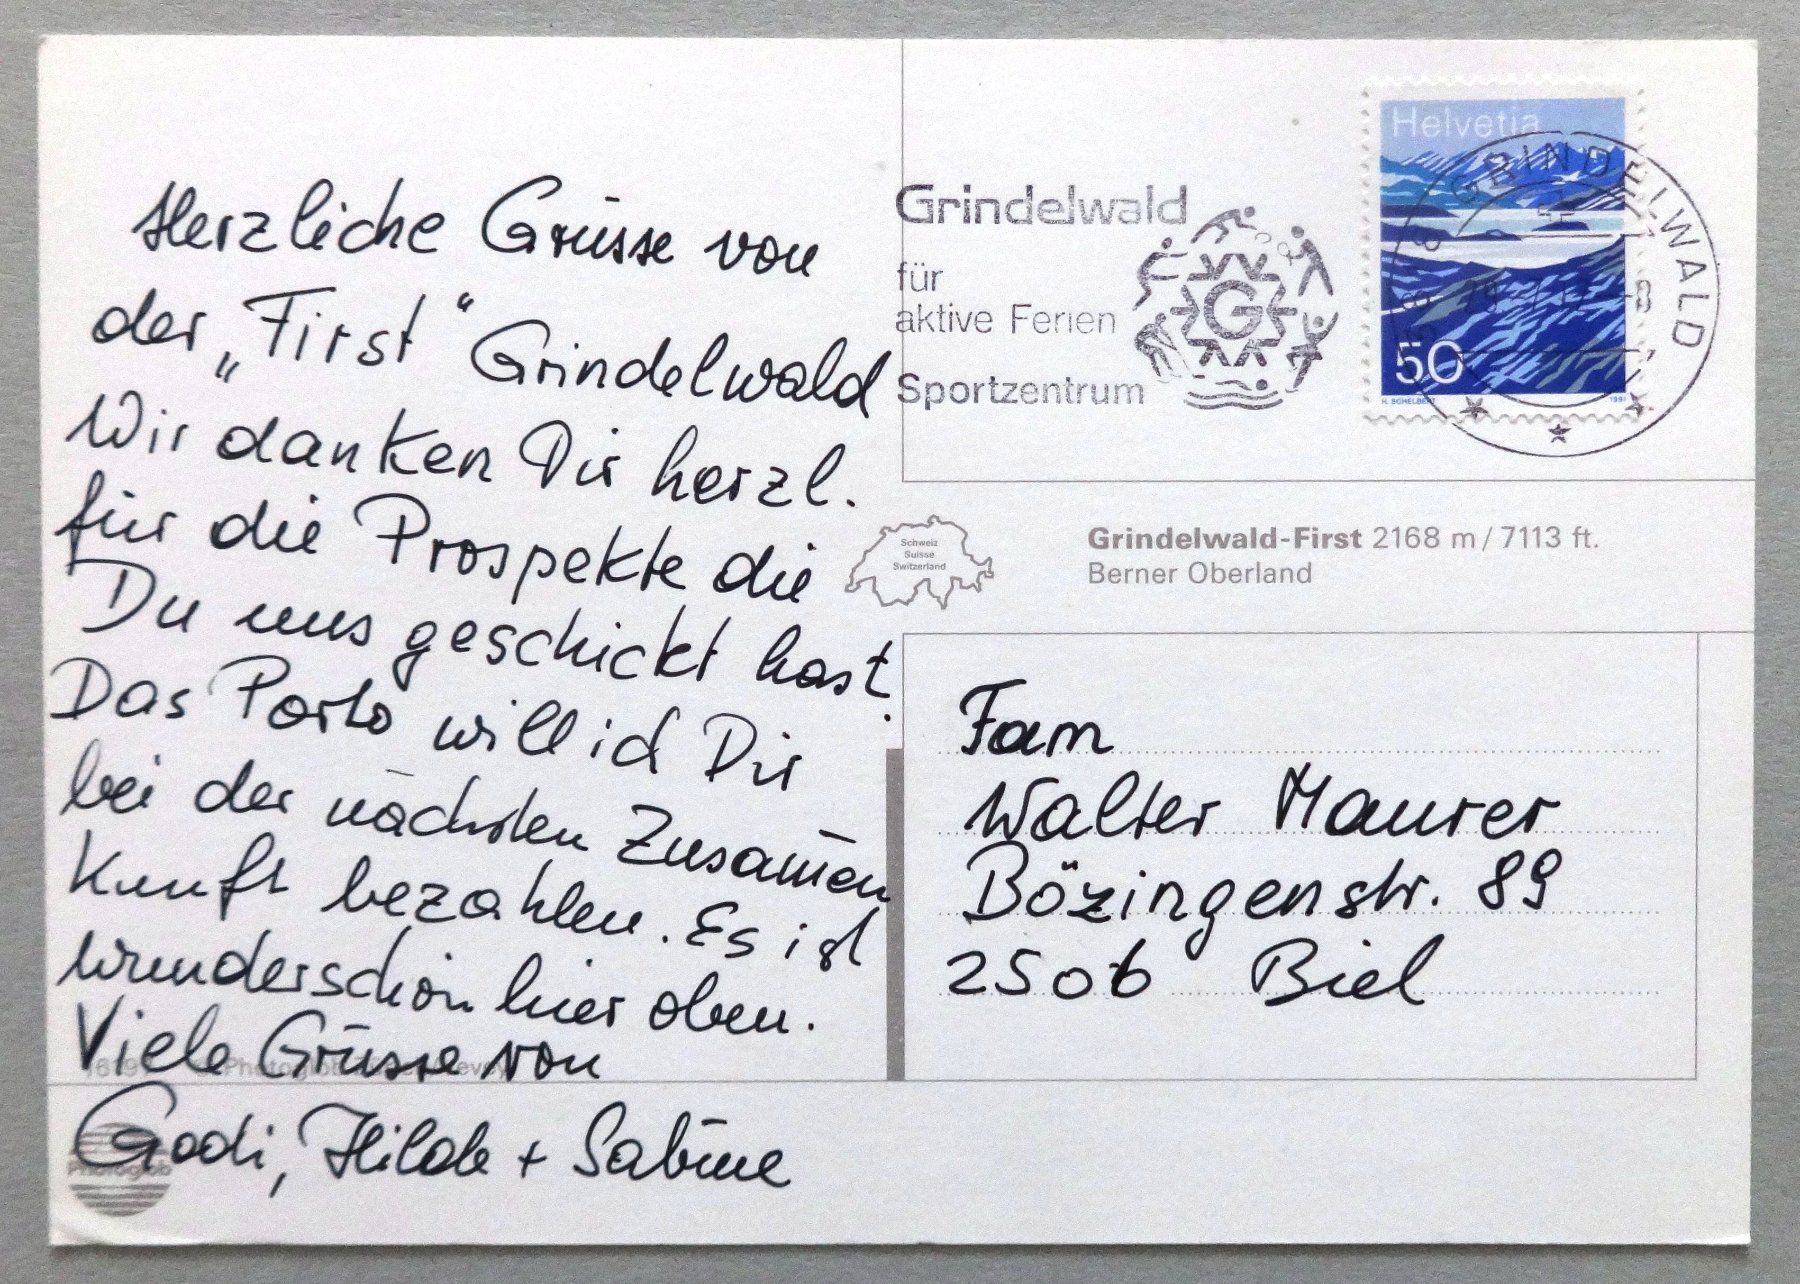 Herzliche Grüsse von
der „First“ Grindelwald
Wir danken Dir herzl.
für die Prospekte die
Du uns geschickt hast.
Das Porto will ich Dir
bei der nächsten Zusam̄en
Kunft bezahlen. Es ist
wunderschön hier oben.
Viele Grüsse von
Godi, Hilde + Sabine
Photoglob
Grindelwald
für
aktive Ferien
Sportzentrum
G
Helvetia
50
H. SCHELBERT 1991
GRINDELWALD
Schweiz
Suisse
Switzerland
Grindelwald-First 2168 m / 7113 ft.
Berner Oberland
Fam
Walter Maurer
Bözingenstr. 89
2506 Biel